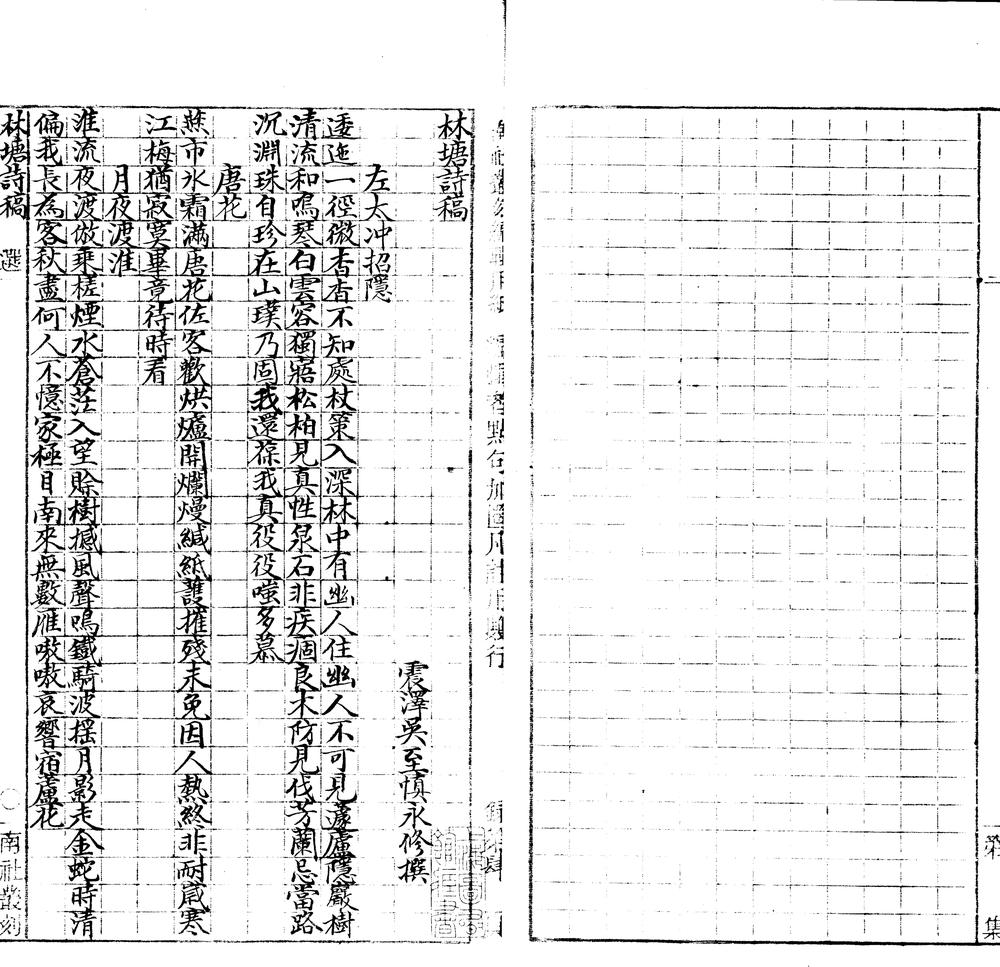 集
林塘詩稿
震澤吳至慎永修撰
左太冲招隱
逶迤一徑微杳杳不知處杖策入深林中有幽人住幽人不可見蘧廬隱巖樹
清流和鳴琴白雲容獨寤松柏見真性泉石非疾痼良木防見伐芳蘭忌當路
沉淵珠自珍在山璞乃固我還葆我真役役嗤多慕
唐花
燕市氷霜滿唐花佐客歡烘爐開爛熳緘紙護摧殘未免因人熱終非耐歲寒
江梅猶寂寞畢竟待時看
月夜渡淮
淮流夜渡倣乘槎煙水蒼茫入望賒樹撼風聲鳴鐵騎波搖月影走金蛇時清
偏我長為客秋盡何人不憶家極目南來無數雁嗷嗷哀響宿蘆花
林塘詩稿 選 南社叢刻